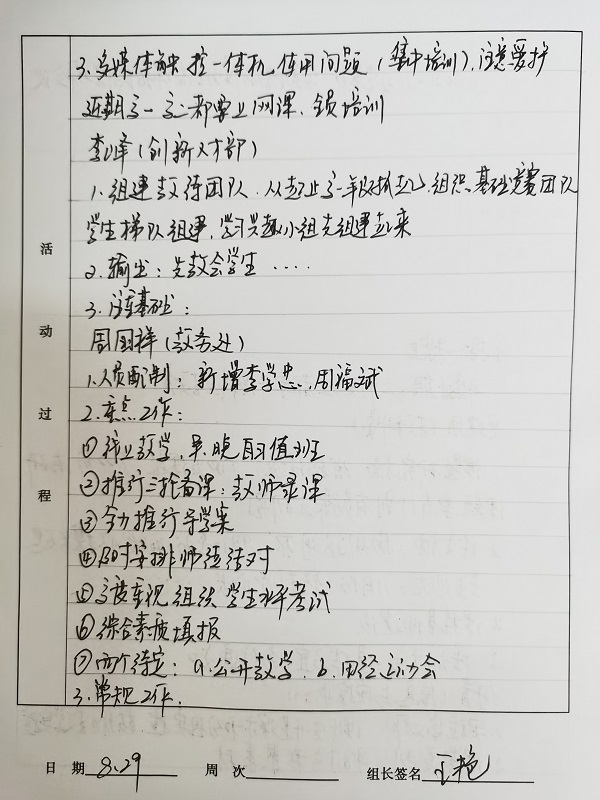 3.多媒体触控一体机使用问题(集中培训),注意爱护
近期高一高二都要上网课,全员培训
李峰(创新人才部)
1.组建教练团队,从起止高一年级抓起,组织基础竞赛团队
学生梯队组建,学习兴趣小组先组建起来
2.输出:先教会学生····
3.注重基础:
周国祥(教务处)
1.人员配制:新增李学忠,周福斌
2.重点工作:
①线上教学,早.晚自习值班
②推行三轮备课:教师录课
③全力推行导学案
④即时安排师徒结对
④高度重视组织学生水平考试
⑥综合素质填报
⑦两个待定:a.公开教学.b.田径运动会
3.常规工作.
活动过程
日期 8.29 周次 组长签名 王艳